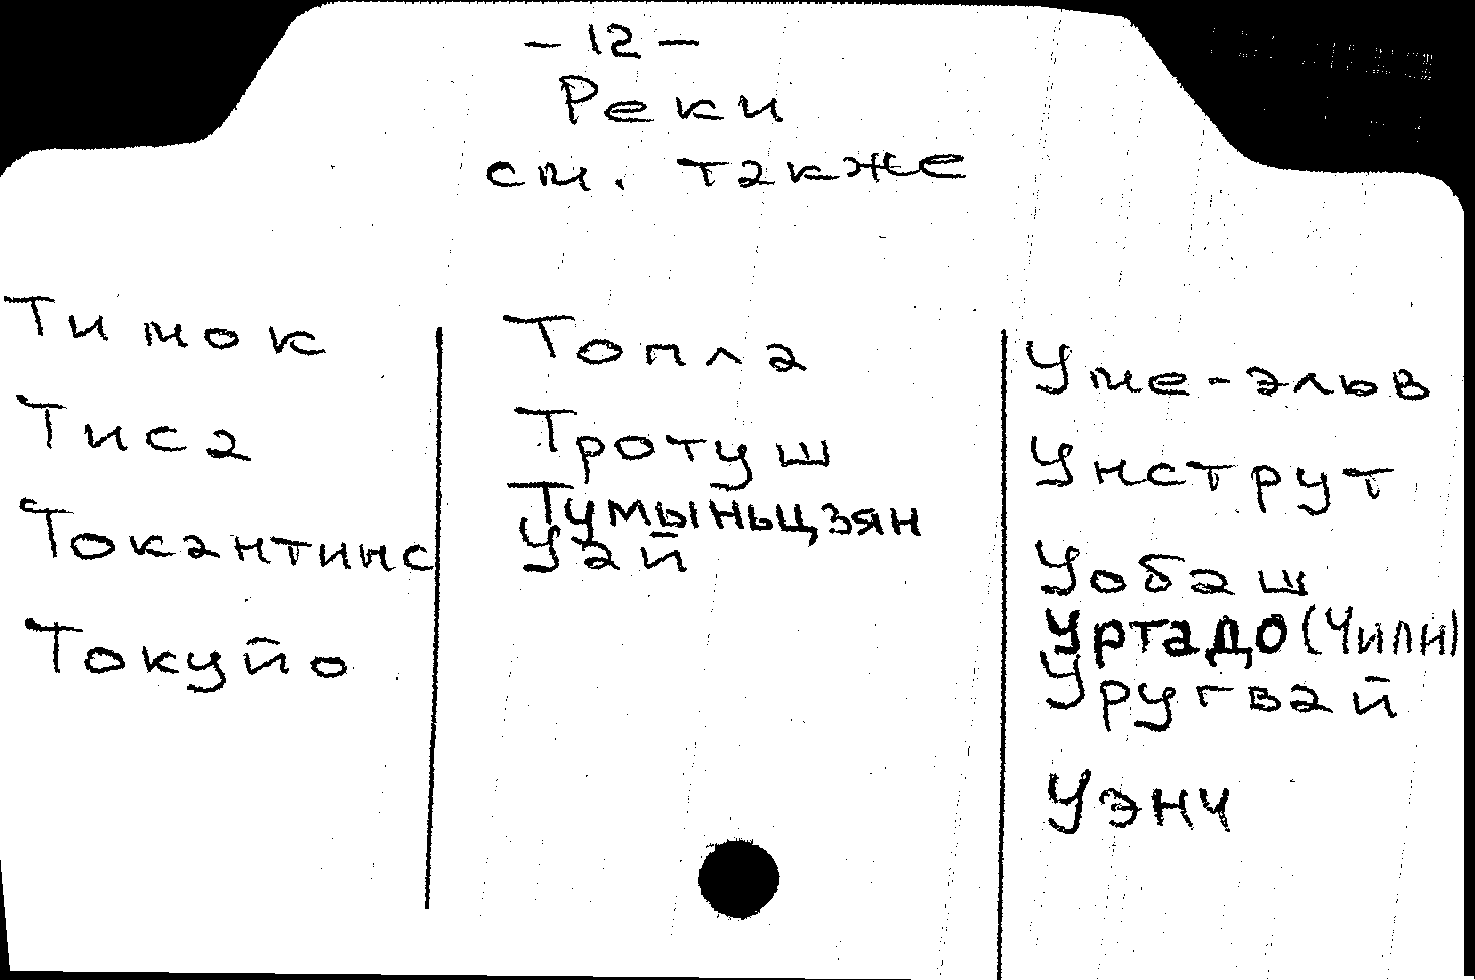 – 12 –
Реки
см. также
Тимок
Тиса
Токантинс
Токуйо
Топла
Тротуш
Тумыньцзян
Уай
Уме-эльв
Унструт
Уобаш
Уртадо (Чили)
Уругвай
Уэнч